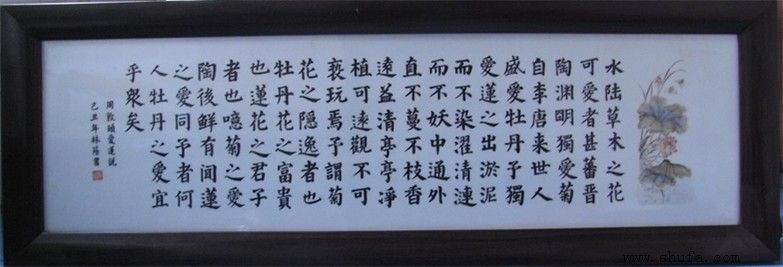 水陆草木之花
可愛者甚蕃晋
陶渊明獨愛菊
自李唐来世人
盛愛牡丹予獨
愛蓮之出淤泥
而不染濯清漣
而不妖中通外
直不蔓不枝香
遠益清亭亭凈
植可遠觀不可
亵玩焉予謂菊
花之隐逸者也
牡丹花之富貴
也蓮花之君子
者也噫菊之愛
陶後鲜有闻蓮
之愛同予者何
人牡丹之愛宜
乎衆矣
周敦頤愛蓮説
己丑年林書
www.shufa.com